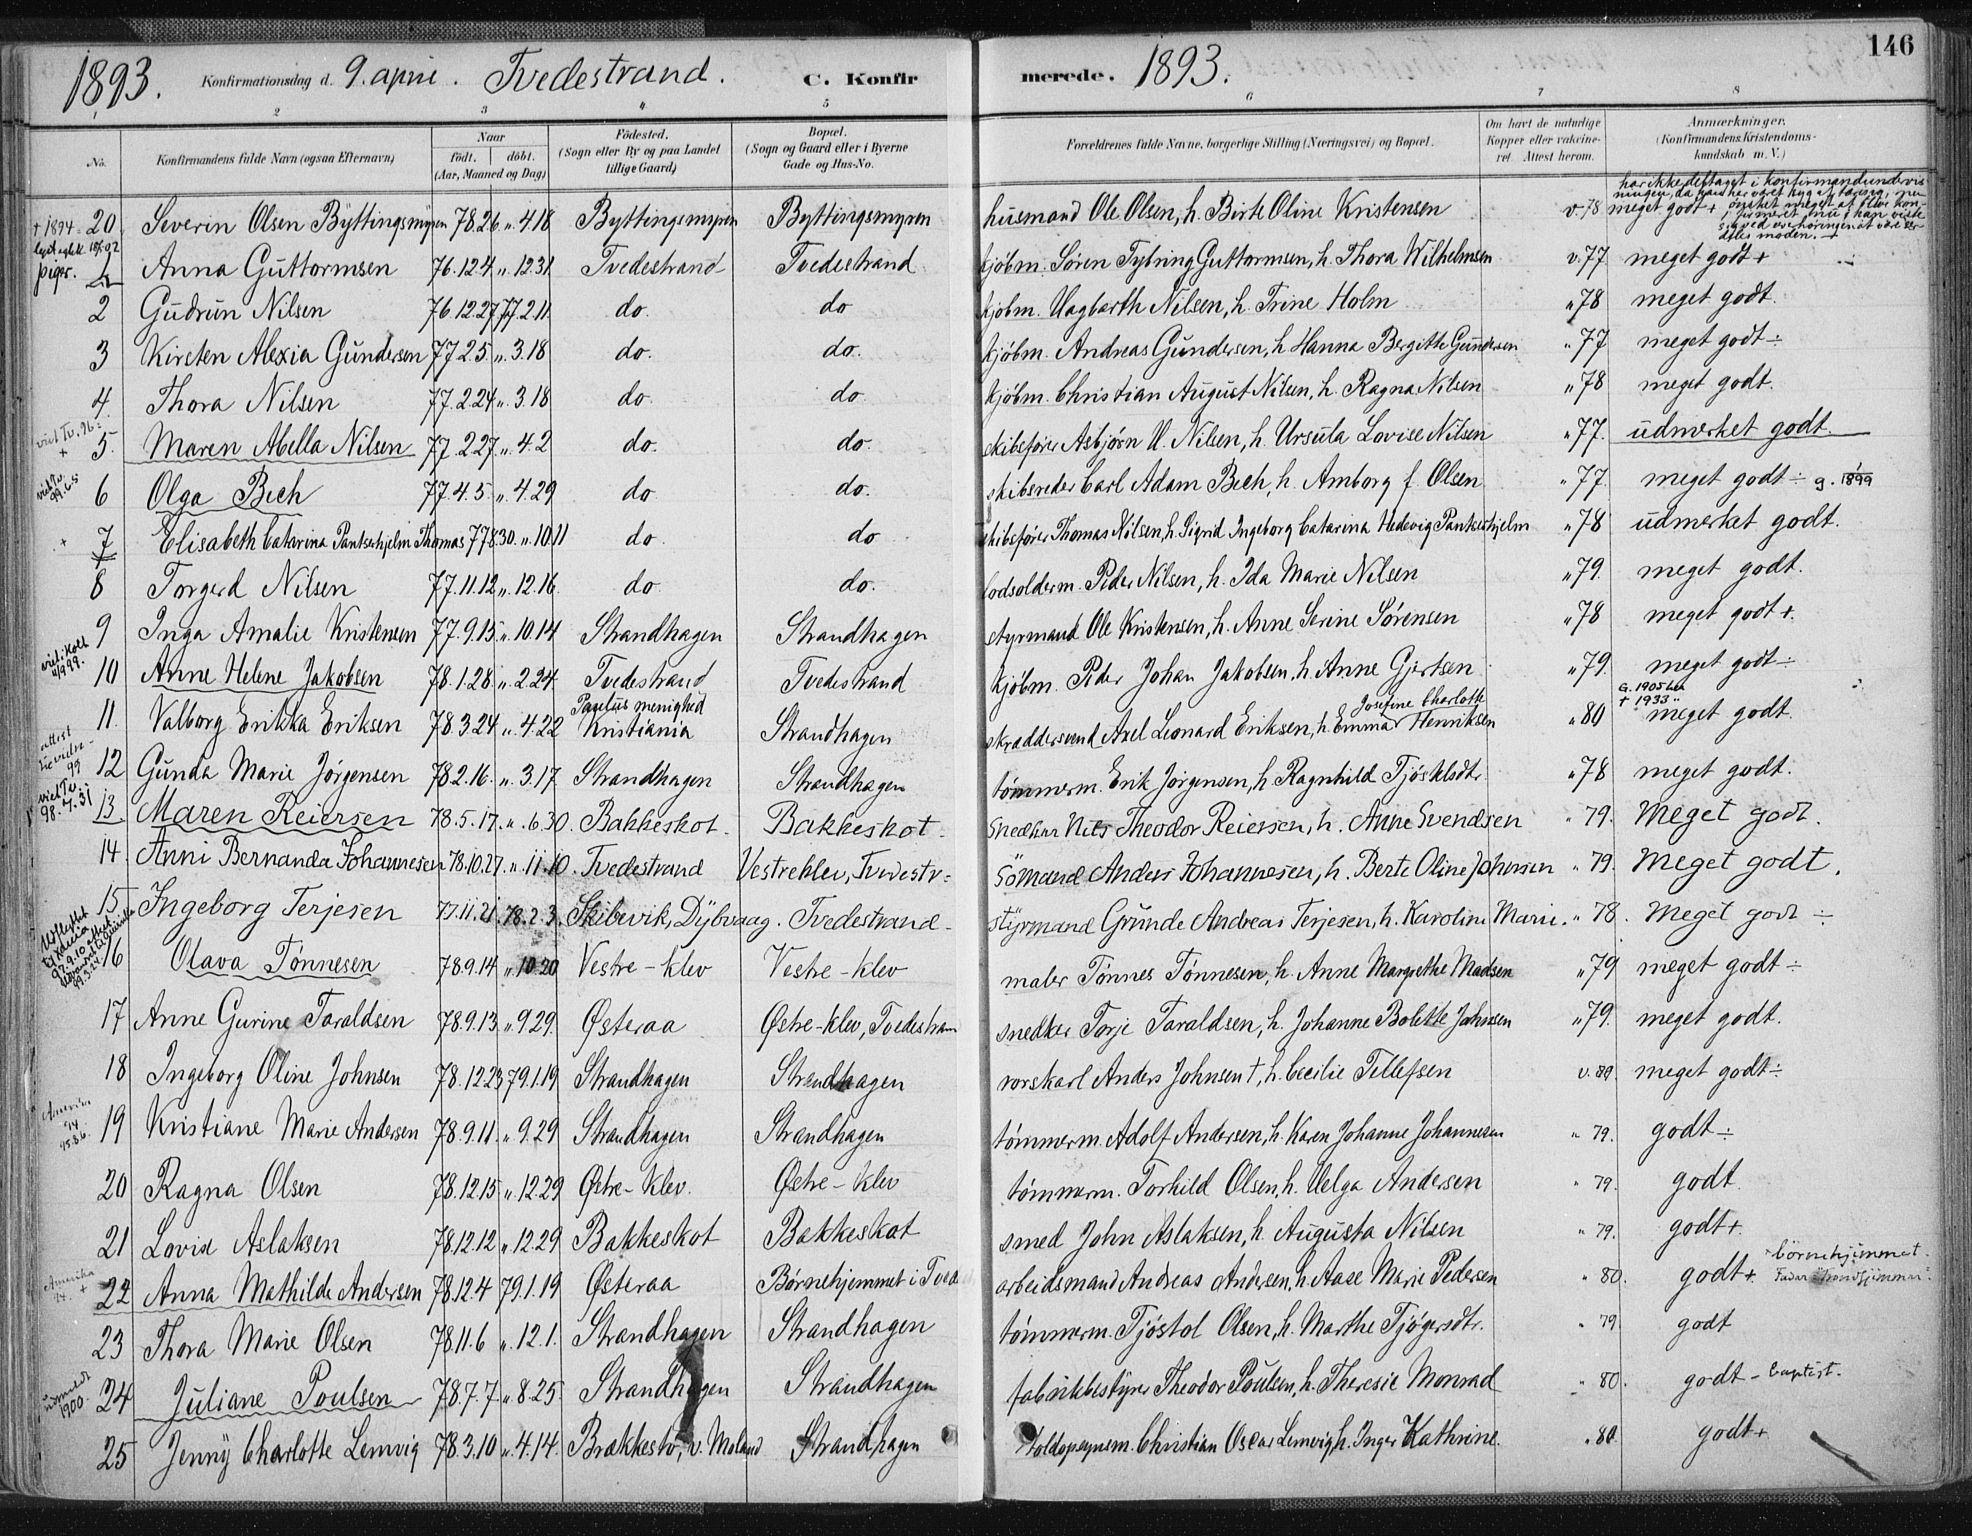 146
1893. Konfirmationsdag d. 9. april. Tvedestrand. C. Konfirmerede. 1893.
1 2 3 4 5 6 7 8
No. Konfirmandens fulde Navn (ogsaa Efternavn) Naar født. døbt. (Aar, Maaned og Dag) Fødested. (Sogn eller By og paa Landet tillige Gaard) Bopæl. (Sogn og Gaard eller i Byerne Gade og Hus-No. Forældrenes fulde Navne, borgerlige Stilling (Næringsvei) og Bopæl. Om havt de naturlige Kopper eller vakcineret. Attest herom. Anmærkninger. (Konfirmandens Kristendomskundskab m. V.)
har ikke deltaget i konfirmandundervisningen, da han har været syg af
† 1894 20 Severin Olsen Byttingsmyren 78.2.6 „ 4.18 Byttingsmyren Byttingsmyren husmand Ole Olsen, h. Birte Oline Kristensen v. 78 meget godt +
piger. 1 Anna Guttormsen 76.12.4 „ 12.31 Tvedestrand Tvedestrand kjøbm. Søren Tybring Guttormsen, h. Thora Wilhelmsen v. 77 meget godt +
2 Gudrun Nilsen 76.12.27 77.2.11 do. do kjøbm. Hagbarth Nilsen, h. Trine Holm „ 78 meget godt.
3 Kirsten Alexia Gundersen 77.2.5. „ 3.18 do. do. kjøbm. Andreas Gundersen, h. Hanna Bergitte Gundersen „ 77 meget godt ÷
4 Thora Nilsen 77.2.24 „ 3.18 do. do. kjøbm. Christian August Nilsen, h. Ragna Nilsen „ 78 meget godt.
viet Tv. 96 +
5. Maren Abella Nilsen 77.2.27 „ 4.2 do. do. skibsfører Asbjørn H. Nilsen, h. Ursula Lovise Nilsen „ 77. udmerket godt.
viet Tv. 99.6.5
6 Olga Bech 77.4.5 „ 4.29 do. do. skibsreder Carl Adam Bech, h. Amborg f. Olsen „ 77. meget godt ÷ g. 1899
+ 7 Elisabeth Catarina Pantserhjelm Thomas 77 8.30. „ 10.11 do. do skibsfører Thomas Nilsen, h. Sigrid Ingeborg Catarina Hedevig Pantserhjelm „ 78 udmerket godt.
8 Torgerd Nilsen 77.11.12 „ 12.16. do. do. lodsolderm. Peder Nilsen, h. Ida Marie Nilsen „ 79. meget godt.
9 Inga Amalie Kristensen 77.9.15 „ 10.14 Strandhagen Strandhagen styrmand Ole Kristensen, h. Anne Serine Sørensen „ 78 meget godt +.
viet i Holt 4/9 99.
10 Anne Helene Jakobsen 78.1.28. „ 2.24. Tvedestrand Tvedestrand kjøbm. Peder Johan Jakobsen, h. Anne Gjertsen „ 79. meget godt ÷
G. 1905
† 1933
11. Valborg Erikka Eriksen 78.3.24 „ 4.22 Paulus menighed Kristiania Strandhagen skræddersvend Axel Leonard Eriksen, h. Emma Josefine Charlotte Henriksen „ 80 meget godt.
attest 99
12 Gunda Marie Jørgensen 78.2.16. „ 3.17. Strandhagen Strandhagen tømmerm. Erik Jørgensen, h. Ragnhild Tjøstelsdtr. „ 78 meget godt.
viet Tv. 98.7.31
13. Maren Reiersen 78.5.17. „ 6.30. Bakkeskot. Bakkeskot. Snedker Nils Theodor Reiersen, h. Anne Svendsen „ 79. Meget godt.
14. Anni Bernanda Johannesen 78.10.27. „ 11.10. Tvedestrand Vestreklev, Tvedestr. Sömand Anders Johannesen, h. Berte Oline Johnsen „ 79. Meget godt.
15 Ingeborg Terjesen 77.11.21. 78.2.3. Skibevik, Dybvaag. Tvedestrand. Styrmand Grunde Andreas Terjesen, h. Karoline Marie. „ 78. Meget godt ÷
16 Olava Tønnesen 78.9.14 „ 10.20 Vestre-klev Vestre-klev maler Tønnes Tønnesen, h. Anne Margrethe Madsen „ 79 meget godt ÷
17 Anne Gurine Taraldsen 78.9.13. „ 9.29. Østeraa Østre-klev, Tvedestran snedker Torje Taraldsen, h. Johanne Bolette Johnsen „ 79. meget godt.
18 Ingeborg Oline Johnsen 78.12.23 79.1.19 Strandhagen Strandhagen vorskarl Anders Johnsen †, h. Cecilie Tellefsen v. 80. meget godt ÷
Amerika 94. 95.8.6.
19 Kristiane Marie Andersen 78.9.11. „ 9.29 Strandhagen Strandhagen tømmerm. Adolf Andersen, h. Karen Johanne Johannesen „ 79. godt ÷
20 Ragna Olsen 78.12.15 „ 12.29 Østre-klev. Østre-klev tømmerm. Torkild Olsen, h. Helga Andersen „ 79. godt.
21 Lovise Aslaksen 78.12.12 „ 12.29 Bakkeskot Bakkeskot smed John Aslaksen, h. Augusta Nilsen „ 79. godt +
Amerika 94. +
22 Anna Mathilde Andersen 78.12.4 79.1.19 Østeraa Børnehjemmet i Tvede arbeidsmand Andreas Andersen, h. Aase Marie Pedersen „ 80. godt + børnehjemmet.
23 Thora Marie Olsen 78.11.6 „ 12.1. Strandhagen Strandhagen tømmerm. Tjøstol Olsen, h. Marthe Tjøgersdtr. „ 79 godt
udmeldt 1900.
24 Juliane Poulsen 78.7.7. „ 8.25. Strandhagen Strandhagen fabrikbestyrer Theodor Poulsen, h. Theresie Monrad „ 80. godt - baptist.
25 Jenny Charlotte Lemvig 78.3.10 „ 4.14. Brækkestø, v. Moland Strandhagen toldopsynsm. Christian Oscar Lemvig, h. Inger Kathrine. „ 80. godt +